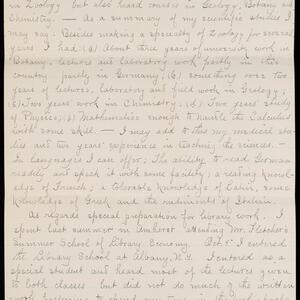 in Zoology but also heard courses in Geology, Botany and
Chemistry. — As a summary of my scientific studies I
may say: Besides making a specialty of Zoology for several
years I had: (a) About three years of university work in
Botany, lectures and laboratory work partly in this
country partly in Germany; (b) something over two
years of lectures, laboratory and field work in Geology;
(c) Two years work in Chemistry; (d) Two years study
of Physics; (e) Mathematics enough to handle the Calculus
with some skill. — I may add to this my medical stu-
dies and two years' experience in teaching the sciences. —
In languages I can offer: The ability to read German
readily and speak it to some extent; a reading knowl-
edge of French; a tolerable knowledge of Latin, some
knowledge of Greek and the rudiments of Italian.
As regards special preparation for library work: I
spent last summer in Amherst attending Mr. Fletcher's
Summer School of Library Economy. Oct. 1st I entered
the Library School at Albany, N.Y. I entered as a
special student and heard most of the lectures given
to both classes, but did not do much of the written
work